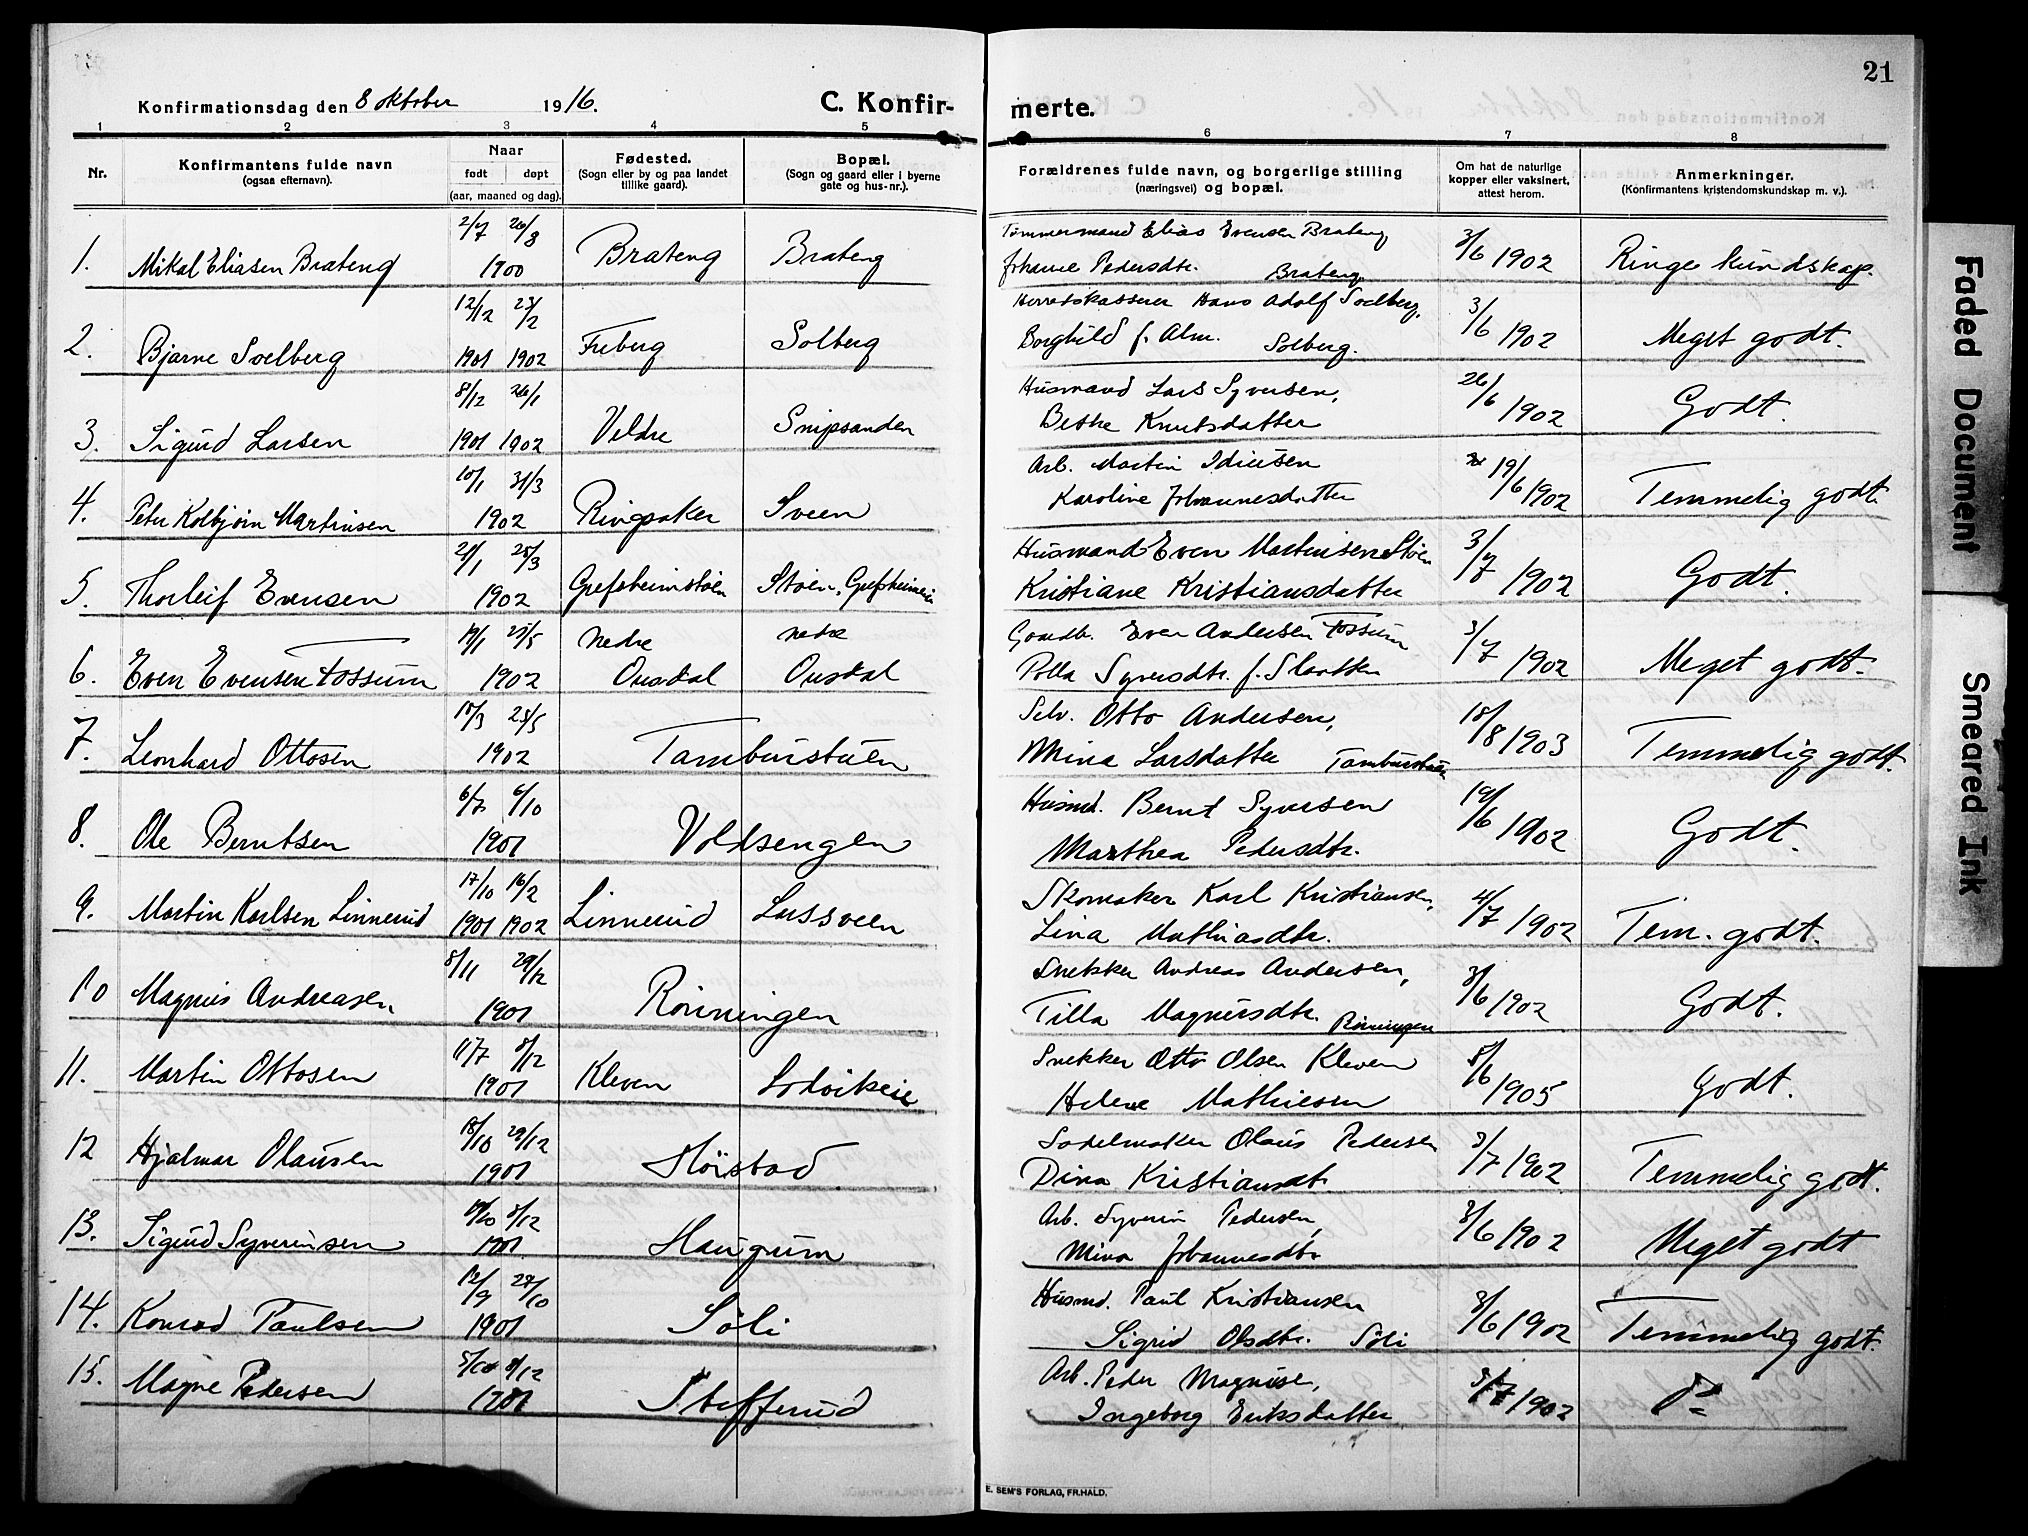 21
Konfirmationsdag den 8 oktober 1916. C. Konfirmerte.
1 2 3 4 5 6 7 8
Nr. Konfirmantens fulde navn (ogsaa efternavn). Naar født døpt (aar, maaned og dag). Fødested. (Sogn eller by og paa landet tillike gaard). Bopæl. (Sogn og gaard eller i byerne gate og hus-nr.). Forældrenes fulde navn, og borgerlige stilling (næringsvei) og bopæl. Om hat de naturlige kopper eller vaksinert, attest herom. Anmerkninger. (Konfirmantens kristendomskundskap m. v.).
2/7 26/8 Tømmermand Elias Evensen Brateng
1. Mikal Eliasen Brateng 1900 Brateng Brateng Johanne Pedersdtr. Brateng 3/6 1902 Ringe kundskap.
12/12 23/2 Herredskasserer Hans Adolf Soelberg,
2. Bjarne Soelberg 1901 1902 Freberg Solberg Borghild f. Alm. Solberg. 3/6 1902 Meget godt.
8/12 26/1 Husmand Lars Syversen,
3. Sigurd Larsen 1901 1902 Veldre Snipsanden Knutsdatter 26/6 1902 Godt.
10/1 31/3 Arb. Martin
4. Peter Kolbjørn Martinsen 1902 Ringsaker Sveen Karoline Johannesdatter 19/6 1902 Temmelig godt.
21/1 25/3 Husmand Even Martinsen Støen
5. Thorleif Evensen 1902 Grefsheimstøen Støen, Kristiane Kristiansdatter 3/7 1902 Godt.
19/1 25/5 nedre nedre Gaardbr. Even Andersen Fossum
6. Even Evensen Fossum 1902 Ousdal Ousdal Polla Syversdtr. f. 3/7 1902 Meget godt.
10/3 25/5 Selv. Otto Andersen,
7. Leonhard Ottosen 1902 Tamburstuen Mina Larsdatter Tamburstuen 18/8 1903 Temmelig godt.
6/7 6/10 Husmd. Bernt Syversen
8. Ole Berntsen 1901 Voldsengen Marthea Pedersdtr. 19/6 1902 Godt.
17/10 16/2 Skomaker Karl Kristiansen,
9. Martin Karlsen Linnerud 1901 1902 Linnerud Larssveen Lina Mathiasdtr. 4/7 1902 Tem. godt.
8/11 29/12 Snekker Andreas Andersen,
10 Magnus Andreasen 1901 Rønningen Tilla Magnusdtr. Rønningen 3/6 1902 Godt.
11/7 8/12 Snekker Otto Olsen Kleven
11. Martin Ottosen 1901 Kleven Helene Mathiesen 5/6 1905 Godt.
18/10 29/12 Sadelmaker Olaus Pedersen
12 Hjalmar Olausen 1901 Høistad Dina Kristiansdt. 3/7 1902 Temmelig godt.
8/12 Arb. Syverin Pedersen,
13. Sigurd Syverinsen 1901 Haugum Mina Johannesdtr 3/6 1902 Meget godt
12/9 27/10 Husmd. Paul Kristiansen
14. Konrad Paulsen 1901 Søli Sigrid Olsdtr. Søli 3/6 1902 Temmelig godt.
8/12 Arb. Peder
15. Magne Pedersen 1901 Stafferud Ingeborg Eriksdatter 3/7 1902 Do
E. SEM'S FORLAG, FR.HALD.
Faded Document
Smeared Ink